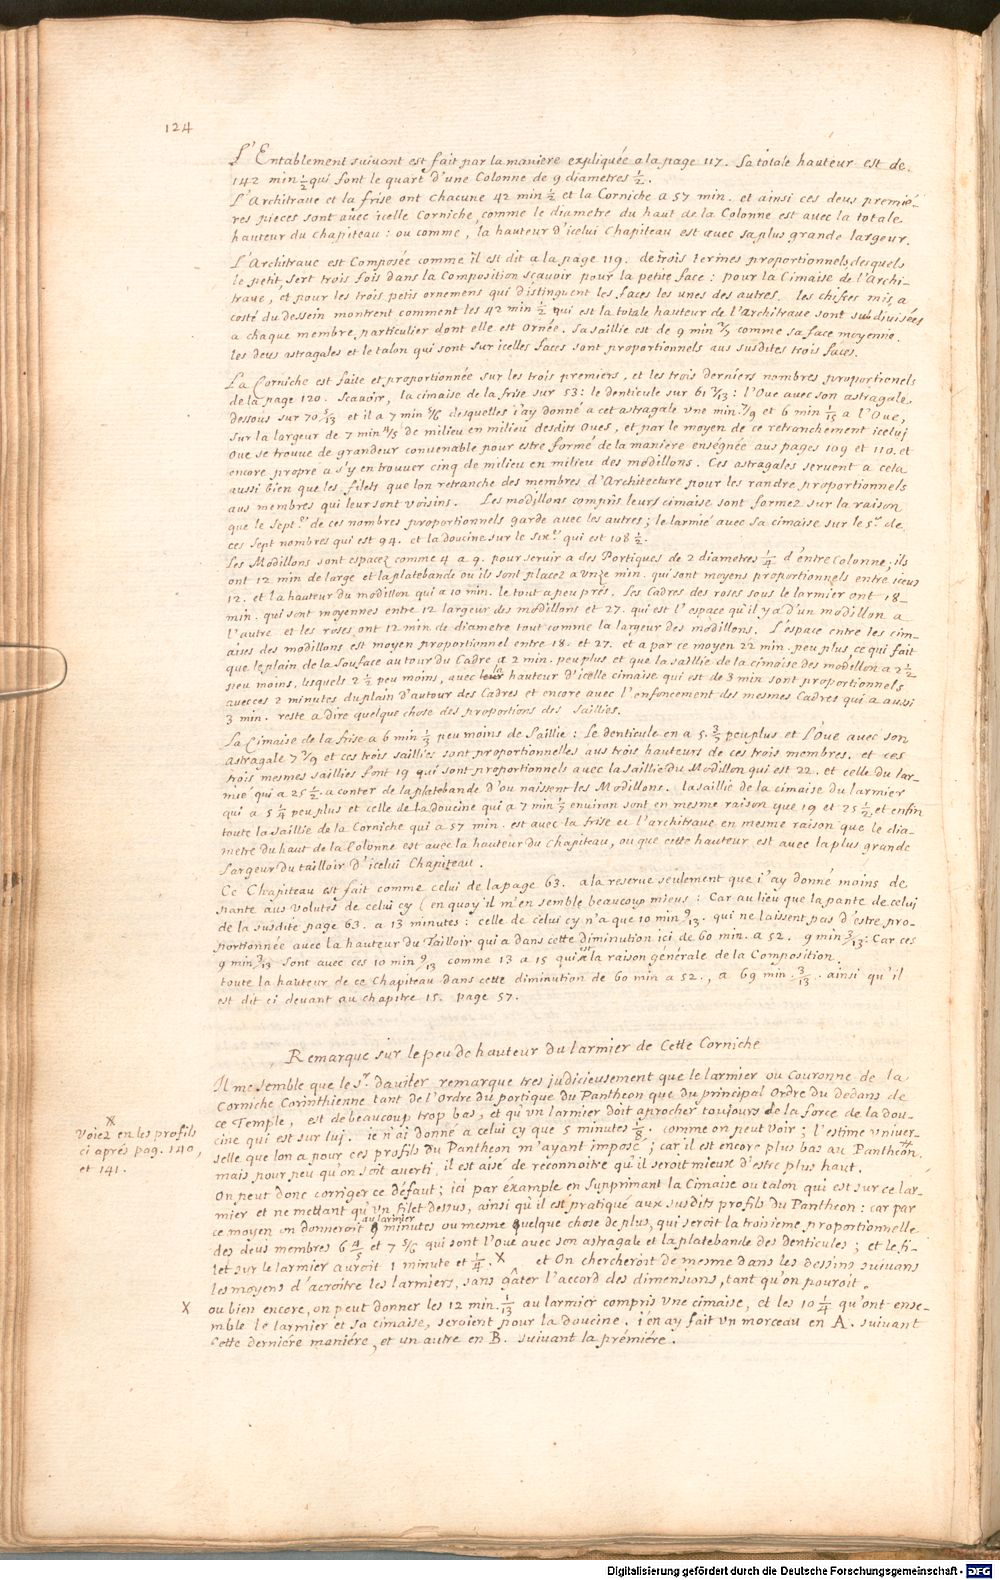 124
L'Entablement suivant est fait par la maniere expliquée a la page 117. Sa totale hauteur est de
142 min ½ qui sont le quart d'une Colonne de 9 diametres ½.
L'Architraue et la frise ont chacune 42 min ½ et la Corniche a 57 min. et ainsi ces deus premié-
res pieces sont auec icelle Corniche, comme le diametre du haut de la Colonne est auec la totale
hauteur du chapiteau : ou comme, la hauteur d'icelui Chapiteau est auec sa plus grande largeur.
L'Architraue est Composée comme il est dit a la page 119. de trois termes proportionnels desquels
le petit sert trois fois dans la Composition scauoir pour la petite face : pour la Cimaise de l'Archi-
traue, et pour les trois petis ornemens qui distinguent les faces les unes des autres. les chifres mis a
costé du dessein montrent comment les 42 min ½ qui est la totale hauteur de l'Architraue sont subdiuisées
a chaque membre particulier dont elle est ornée. Sa saillie est de 9 min ⅖ comme sa face moyenne.
les deus astragales et le talon qui sont sur icelles faces sont proportionnels aus susdites trois faces.
La Corniche est faite et proportionnée sur les trois premiers, et les trois derniers nombres proportionels
de la page 120. Scauoir, la cimaise de la frise sur 53 : le denticule sur 61 2/13 : l'Oue avec son astragale
dessous sur 70 5/13 et il a 7 min 5/6 desquelles i'ay donné a cet astragale vne min. 7/9 et 6 min 1/15 a l'Oue,
Sur la largeur de 7 min 4/5 de milieu en milieu desdits Oues, et par le moyen de ce retranchement icelui
Oue se trouve de grandeur convenable pour estre formé de la maniere enségnée aus pages 109 et 110. et
encore propre a s'y en trouuer cinq de milieu en milieu des modillons. Ces astragales seruent a cela
aussi bien que les filets que lon retranche des membres d'Architecture pour les randre proportionnels
aus membres qui leur sont voisins. Les modillons compris leurs cimaise sont formez sur la raison
que le Sept.e de ces nombres proportionnels garde auec les autres ; le larmié auec sa cimaise sur le 5.e de
ces sept nombres qui est 94. et la doucine sur le six.e qui est 108 ½.
Les Modillons sont espacez comme 4 a 9. pour seruir a des Portiques de 2 diametres ¼ d'entre Colonne ; ils
ont 12 min de large et la platebande ou ils sont placez a vnze min. qui sont moyens proportionnels entre iceus
12. et la hauteur du modillon qui a 10 min. le tout a peu prés. Les Cadres des roses sous le larmier ont 18
min. qui sont moyennes entre 12 largeur des modillons et 27. qui est l'espace qu'il y a d'un modillon a
l'autre et les roses ont 12 min de diametre tout comme la largeur des modillons. L'espace entre les cim-
aises des modillons est moyen proportionnel entre 18. et 27. et a par ce moyen 22 min. peu plus, ce qui fait
que le plain de la souface autour du Cadre a 2 min. peu plus et que la saillie de la cimaise des modillon a 2 ½
peu moins, lesquels 2 ½ peu moins, avec la hauteur d'icelle cimaise qui est de 3 min sont proportionnels
avec ces 2 minutes du plain d'autour des Cadres et encore avec l'enfoncement des mesmes Cadres qui a aussi
3 min. reste a dire quelque chose des proportions des saillies.
La Cimaise de la frise a 6 min ⅓ peu moins de saillie : Le denticule en a 5. 3/7 peu plus et l'Oue avec son
astragale 7 2/9 et ces trois saillies sont proportionnelles aus trois hauteurs de ces trois membres. et ces
trois mesmes saillies font 19 qui sont proportionnels avec la saillie du Modillon qui est 22. et celle du lar-
mié qui a 25 ½. a conter de la platebande d'ou naissent les Modillons. la saillie de la cimaise du larmier
qui a 5 ¼ peu plus et celle de la doucine qui a 7 min ½ enuiran sont en mesme raison que 19 et 25 ½, et enfin
toute la saillie de la Corniche qui a 57 min. est avec la frise et l'architraue en mesme raison que le dia-
metre du haut de la Colonne est avec la hauteur du Chapiteau, ou que cette hauteur est avec la plus grande
Largeur du tailloir d'icelui Chapiteau.
Ce Chapiteau est fait comme celui de la page 63. a la reserue seulement que i'ay donné moins de
pante aus volutes de celui cy (en quoy il m'en semble beaucoup mieus : Car au lieu que la pante de celui
de la susdite page 63. a 13 minutes : celle de celui cy n'a que 10 min 9/13. qui ne laissent pas d'estre pro-
portionnée avec la hauteur du Tailloir qui a dans cette diminution ici de 60 min. a 52. 9 min 3/13 : Car ces
9 min 3/13 sont avec ces 10 min 9/13 comme 13 a 15 qui est la raison generale de la Composition.
toute la hauteur de ce Chapiteau dans cette diminution de 60 min a 52., a 69 min. 3/13. ainsi qu'il
est dit ci devant au chapitre 15. page 57.
Remarque sur le peu de hauteur du larmier de Cette Corniche
Il me semble que le s.r daviler remarque tres judicieusement que le larmier ou Couronne de la
Corniche Corinthienne tant de l'Ordre du portique du Pantheon que du principal Ordre du dedans de
ce Temple, est de beaucoup trop bas, et qu'vn larmier doit aprocher toujours de la force de la dou-
cine qui est sur luj. ie n'ai donné a celui cy que 5 minutes ⅛. comme on peut voir ; l'estime vniver-
selle que lon a pour ces profils du Pantheon m'ayant imposé ; car il est encore plus bas au Pantheon,
mais pour peu qu'on soit averti, il est aisé de reconnoitre qu'il seroit mieux d'estre plus haut.
X
Voiez en les profils
ci aprés pag. 140,
et 141.
On peut donc corriger ce défaut ; ici par éxample en supprimant la Cimaise ou talon qui est sur ce lar-
mier et ne mettant qu'vn filet dessus, ainsi qu'il est pratiqué aux susdits profils du Pantheon : car par
ce moyen on donneroit au larmier 9 minutes ou mesme quelque chose de plus, qui seroit la troisieme proportionnelle
des deus membres 6 4/5 et 7 5/6 qui sont l'Oue avec son astragale et la platebande des denticules ; et le fi-
let sur le larmier auroit 1 minute et ¼. X et On chercheroit de mesme dans les dessins suivans
les moyens d'acroitre les larmiers, sans gâter l'accord des dimensions, tant qu'on pouroit.
X ou bien encore, on peut donner les 12 min. 1/13 au larmier compris vne cimaise, et les 10 ¼ qu'ont ense-
mble le larmier et sa cimaise, seroient pour la doucine. i'en ay fait vn morceau en A. suivant
Cette derniére maniére, et un autre en B. suivant la prémiére.
Digitalisierung gefördert durch die Deutsche Forschungsgemeinschaft - DFG